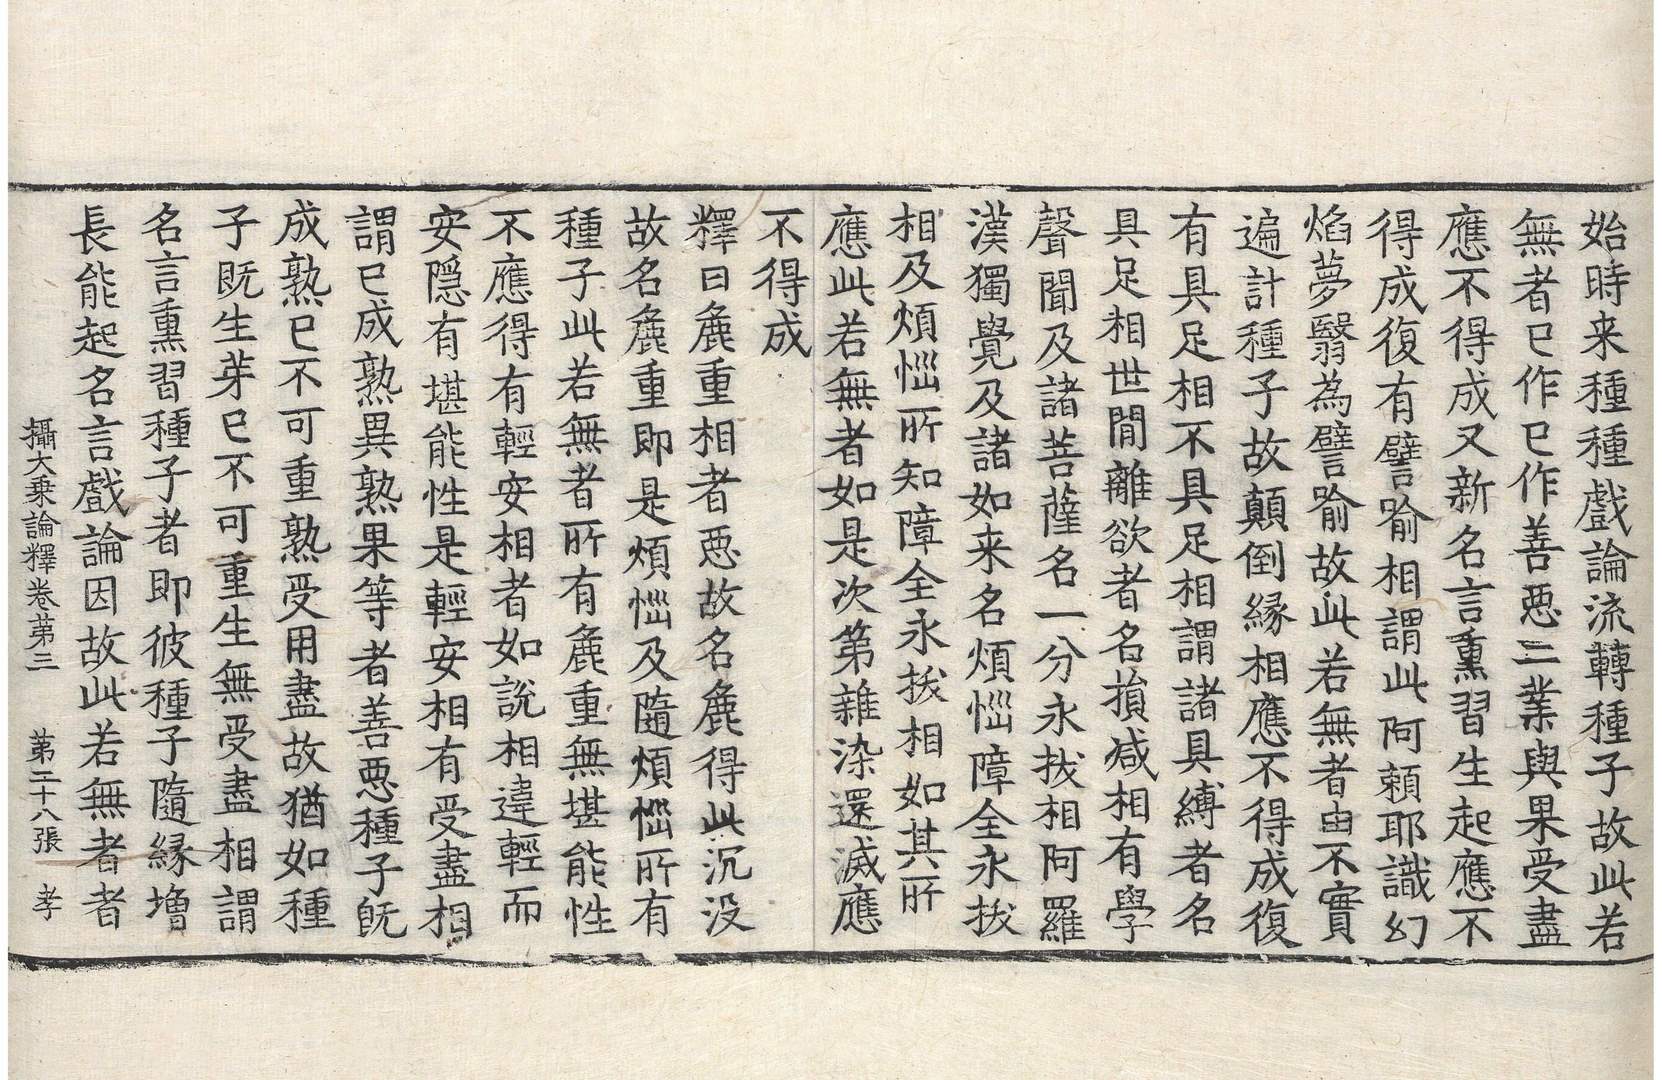 始時来種種戲論流轉種子故此若
無者已作已作善惡二業與果受盡
應不得成又新名言熏習生起應不
得成復有譬喻相謂此阿賴耶識幻
焰夢翳為譬喻故此若無者由不實
遍計種子故顛倒緣相應不得成復
有具足相不具足相謂諸具縛者名
具足相世間離欲者名損減相有學
聲聞及諸菩薩名一分永拔相阿羅
漢獨覺及諸如来名煩惱障全永拔
相及煩惱所知障全永拔相如其所
應此若無者如是次第雜染還滅應
不得成
釋曰麁重相者惡故名麁得此沉没
故名麁重即是煩惱及隨煩惱所有
種子此若無者所有麁重無堪能性
不應得有輕安相者如說相違輕而
安隱有堪能性是輕安相有受盡相
謂已成熟異熟果等者善惡種子既
成熟已不可重熟受用盡故猶如種
子既生芽已不可重生無受盡相謂
名言熏習種子者即彼種子隨緣增
長能起名言戲論因故此若無者者
攝大乘論釋卷第三 第二十八張 孝